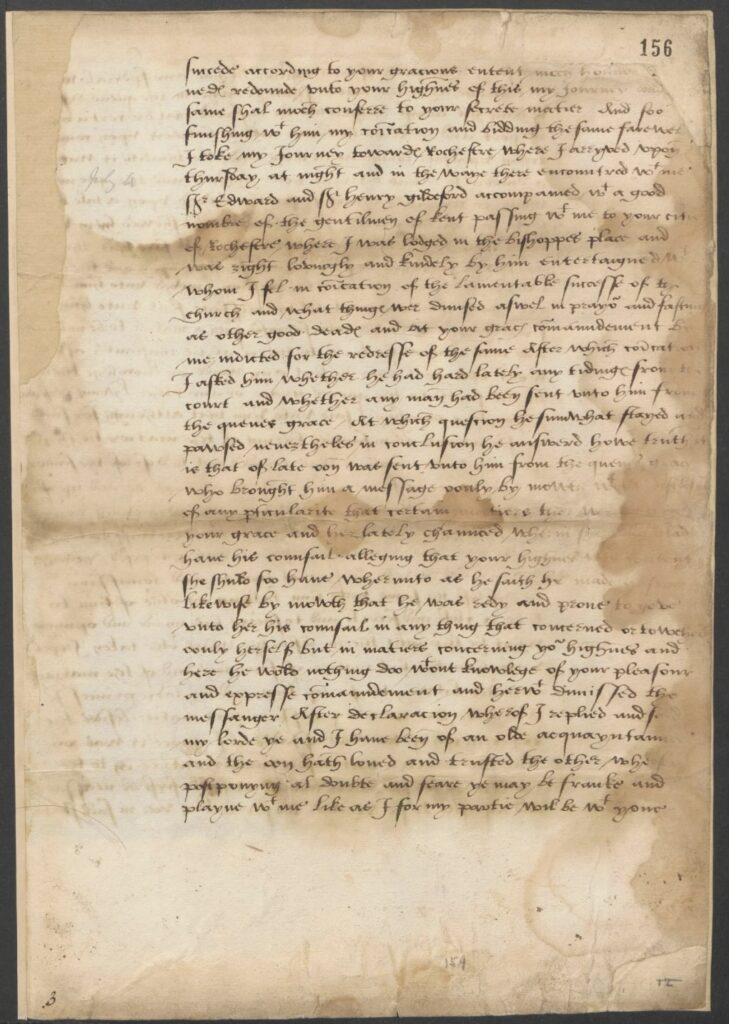 156
succede according to your gracious entent
ned redounde unto your highnes of this my Journey
same shal moch conferre to your secrete matier And soo
finishing wt him my coication and bidding the same farewel
I toke my Journey toward Rochestre where I arryved upon
thursday at night and in the waye there encountred wt me
Sr Edward and Sr Henry gildeford accompanied wt a good
nombre of the gentilmen of kent passing wt me to your citie
of Rochestre where I was lodged in the bishoppes place and
was right lovingly and kindely by him entertaigned wt
whom I fel in coication of the lamentable successe of the
church and what thing wer divised aswel in prayor and fasting
as other good deades and at your grac comaundement by
me indicted for the redresse of the same After which coicat
I asked him whether he had hard lately any tidinges from the
court and whether any man had been sent unto him from
the quenes grace At which question he sumwhat stayed and
pawsed nevertheles in conclusion he answerd howe truth
is that of late oon was sent unto him from the quenes grace
who brought him a message oonly by mowth
of any pticularite that certain matiers ther wer
your grace and her lately chaunced wherin
have his counsail alleging that your highnes
she shuld soo have wherunto as he saith he made
likewise by mowth that he was redy and prone to yeve
unto her his counsail in any thing that concerned or towched
oonly herself but in matiers concerning yor highnes and
here he wold nothing doo wtout knowlege of your pleasour
and expresse comaundement and herwt dimissed the
messanger After declaracion wherof I replied and
my lorde ye and I have been of an olde acquayntaunce
and the oon hath loved and trusted the other wher
postponyng al doubte and feare ye may be franke and
playne wt me like as I for my partie wil be wt youe
154
3